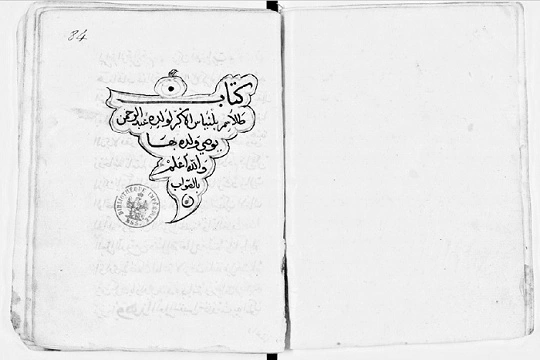 84
كتاب
طلاسم بلنياس الاكبر لولده عبد الرحمن
يوصي ولده بها
والله أعلم
بالصواب
BIBLIOTHÈQUE IMPÉRIALE